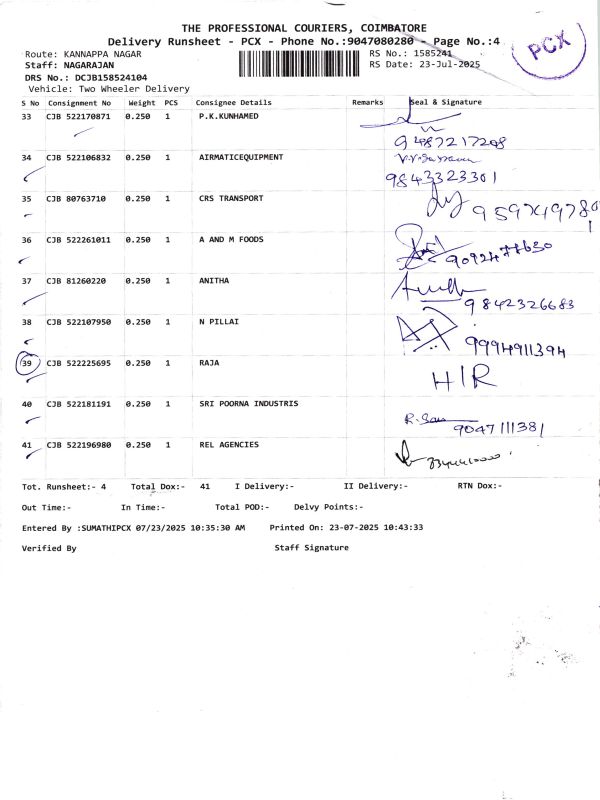 THE PROFESSIONAL COURIERS, COIMBATORE
Delivery Runsheet - PCX - Phone No.:9047080280 - Page No.:4
PCX
Route: KANNAPPA NAGAR RS No.: 1585241
Staff: NAGARAJAN RS Date: 23-Jul-2025
DRS No.: DCJB158524104
Vehicle: Two Wheeler Delivery
S No Consignment No Weight PCS Consignee Details Remarks Seal & Signature
33 CJB 522170871 0.250 1 P.K.KUNHAMED
9487217208
34 CJB 522106832 0.250 1 AIRMATICEQUIPMENT
9843323301
35 CJB 80763710 0.250 1 CRS TRANSPORT
36 CJB 522261011 0.250 1 A AND M FOODS
37 CJB 81260220 0.250 1 ANITHA
9842326683
38 CJB 522107950 0.250 1 N PILLAI
9994911394
39 CJB 522225695 0.250 1 RAJA H/R
40 CJB 522181191 0.250 1 SRI POORNA INDUSTRIS
9047111381
41 CJB 522196980 0.250 1 REL AGENCIES
Tot. Runsheet:- 4 Total Dox:- 41 I Delivery:- II Delivery:- RTN Dox:-
Out Time:- In Time:- Total POD:- Delvy Points:-
Entered By :SUMATHIPCX 07/23/2025 10:35:30 AM Printed On: 23-07-2025 10:43:33
Verified By Staff Signature